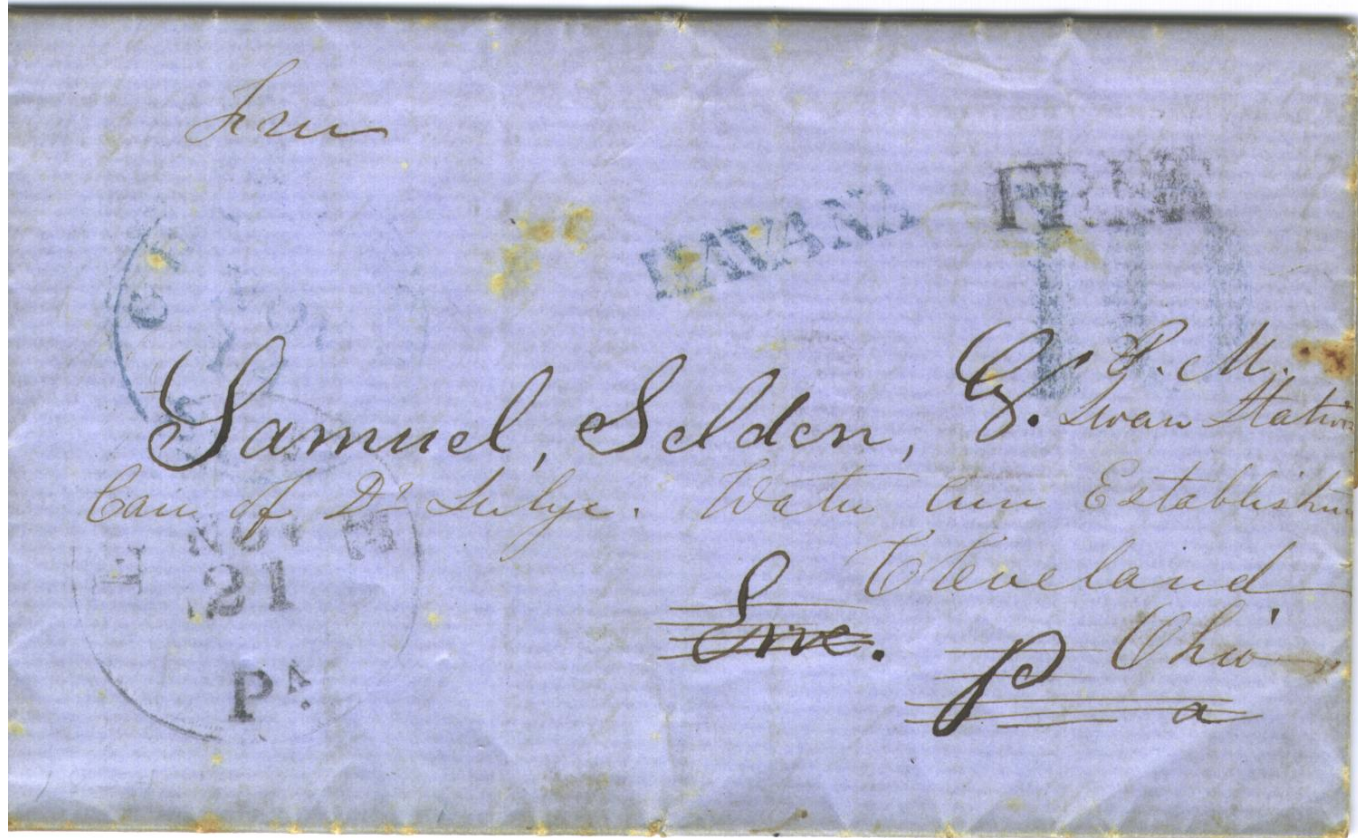 Free
HAVANA
FREE
10
Samuel, Selden,
P. M.
Swan Station
Care of Dr Water Cure Establishm
Cleveland
Erie. Ohio
Pa
NOV
21
E E
PA